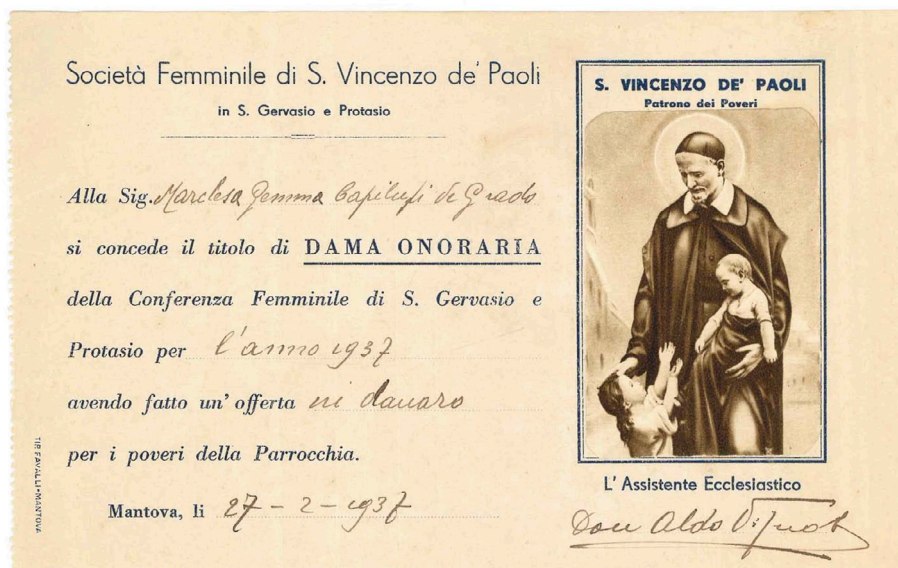 Società Femminile di S. Vincenzo de' Paoli
in S. Gervasio e Protasio
Alla Sig. Marchesa Gemma Capilupi de Grado
si concede il titolo di DAMA ONORARIA
della Conferenza Femminile di S. Gervasio e
Protasio per l'anno 1937
avendo fatto un' offerta in danaro
per i poveri della Parrocchia.
Mantova, li 27-2-1937
TIP. FAVALLI-MANTOVA
S. VINCENZO DE' PAOLI
Patrono dei Poveri
L' Assistente Ecclesiastico
Don Aldo